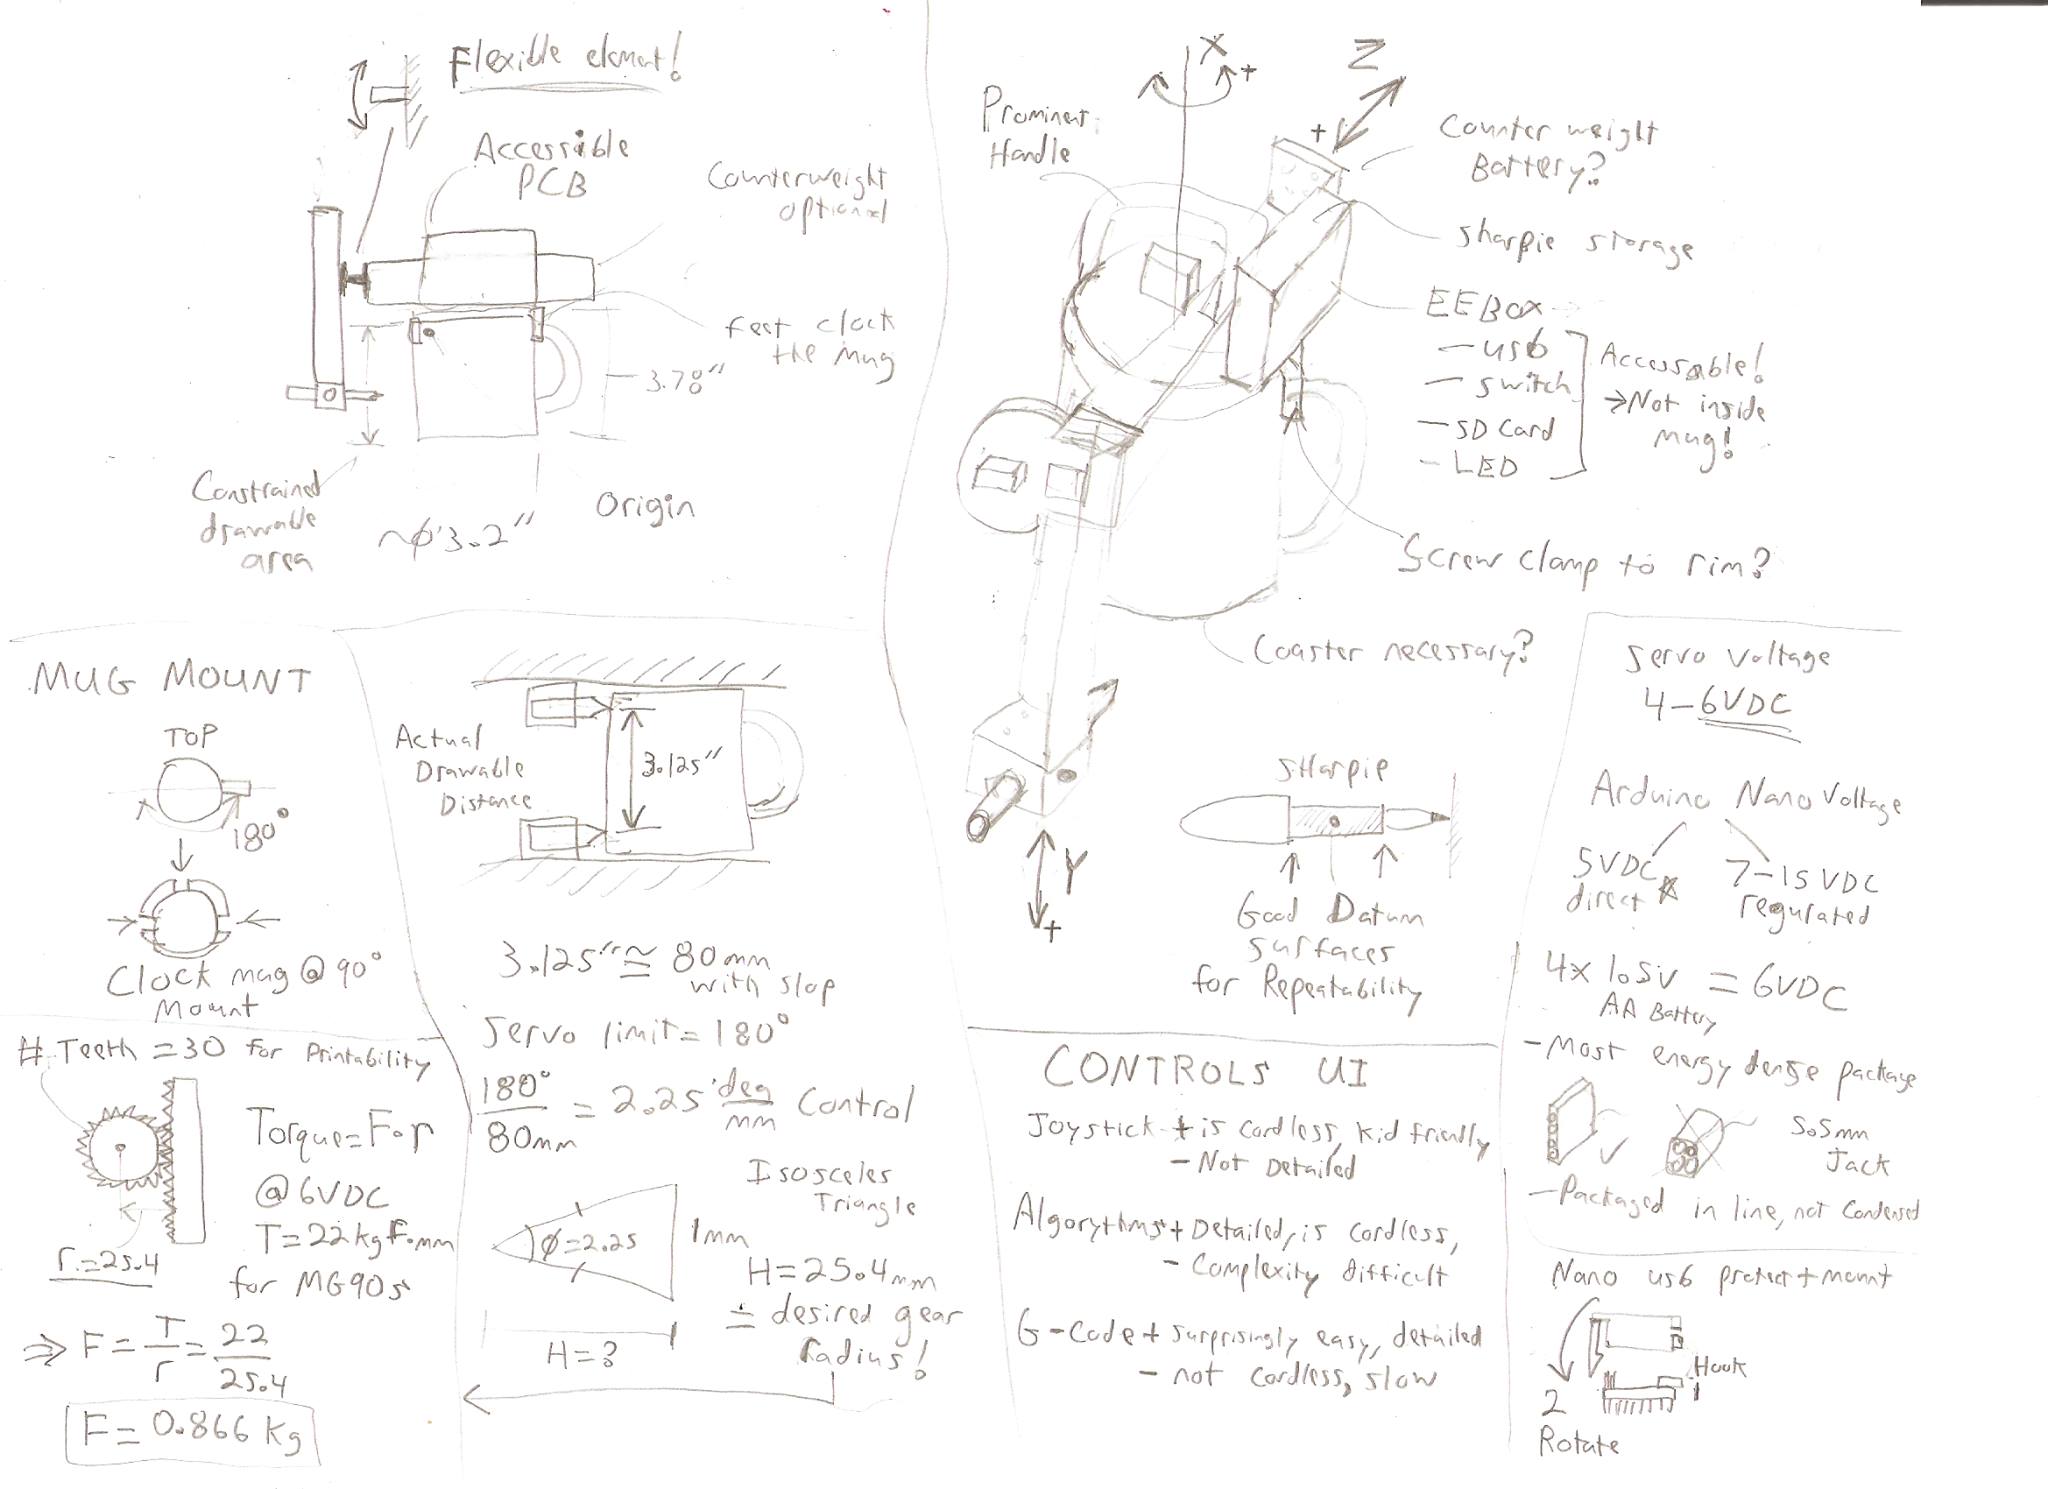 Flexible element!
Accessible
PCB
Counterweight
optional
Feet clock
the mug
3.78"
Constrained
drawable
area
~ϕ3.2"
Origin
X
+
Z
+
Prominent
Handle
Counter weight
Battery?
Sharpie storage
EEBOX
- usb
- switch
- SD Card
- LED
Accessable!
→ Not inside
mug!
Screw clamp to rim?
Coaster necessary?
Y
+
Sharpie
Good Datum
surfaces
for Repeatability
MUG MOUNT
TOP
180°
Clock mug @ 90°
Mount
Actual
Drawable
Distance
3.125"
3.125" ≅ 80mm
with slop
Servo limit = 180°
180°
80mm
= 2.25 deg
mm
Control
Isosceles
Triangle
ϕ=2.25
1mm
H=25.4mm
≐ desired gear
radius!
H=?
# Teeth = 30 for printability
Torque = F·r
@ 6VDC
T=22 kgF·mm
for MG90s
r=25.4
⇒ F = T/r = 22/25.4
F = 0.866 kg
CONTROLS UI
Joystick + is cordless, kid friendly
- Not Detailed
Algorythms + Detailed, is cordless,
- Complexity difficult
G-Code + surprisingly easy, detailed
- not cordless, slow
Servo Voltage
4-6VDC
Arduino Nano Voltage
5VDC
direct
7-15VDC
regurated
4x 1.5V = 6VDC
AA Battery
- Most energy dense package
5.5mm
Jack
- Packaged in line, not condensed
Nano usb protect + mount
Hook
1
2
Rotate